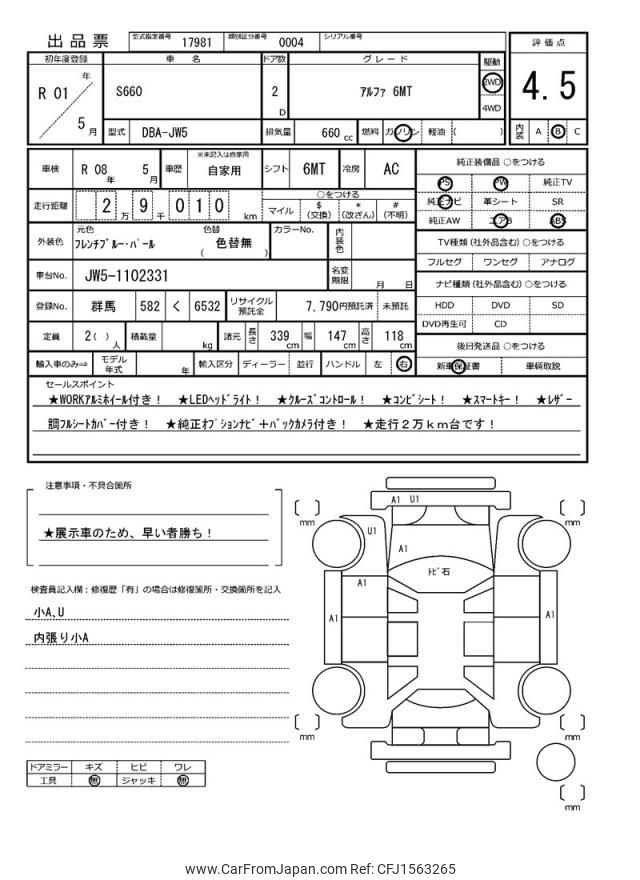 出品票 型式指定番号 17981 類別区分番号 0004 シリアル番号
評価点
4.5
内装 A B C
初年度登録 車名 ドア数 グレード 駆動
R 01 年 5 月 S660 2 D アルファ 6MT 2WD 4WD
型式 DBA-JW5 排気量 660 cc 燃料 ガソリン 軽油 ( )
車検 R 08 年 5 月 車歴 ※未記入は自家用 自家用 シフト 6MT 冷房 AC
走行距離 2 万 9 千 0 1 0 km
○をつける
マイル $ (交換) * (改ざん) # (不明)
外装色 元色 フレンチブルー・パール 色替 色替無 ( ) カラーNo. 内装色
車台No. JW5-1102331 名変期限 月 日
登録No. 群馬 582 く 6532 リサイクル預託金 7,790円預託済 未預託
定員 2( ) 人 積載量 kg 諸元 長さ 339 cm 幅 147 cm 高さ 118 cm
輸入車のみ⇒ モデル年式 年 輸入区分 ディーラー 並行 ハンドル 左 右
純正装備品 ○をつける
PS PW 純正TV
純正ナビ 革シート SR
純正AW エアB ABS
TV種類 (社外品含む) ○をつける
フルセグ ワンセグ アナログ
ナビ種類 (社外品含む) ○をつける
HDD DVD SD
DVD再生可 CD
後日発送品 ○をつける
新車保証書 車輌取説
セールスポイント
★WORKアルミホイール付き! ★LEDヘッドライト! ★クルーズコントロール! ★コンビシート! ★スマートキー! ★レザー
調フルシートカバー付き! ★純正オプションナビ+バックカメラ付き! ★走行2万km台です!
注意事項・不具合箇所
★展示車のため、早い者勝ち!
検査員記入欄:修復歴「有」の場合は修復箇所・交換箇所を記入
小A、U
内張り小A
ドアミラー キズ ヒビ ワレ
工具 無 ジャッキ 無
A1 U1
mm
mm
U1
A1
トビ石
A1
A1
A1
mm
mm
mm
www.CarFromJapan.com Ref: CFJ1563265